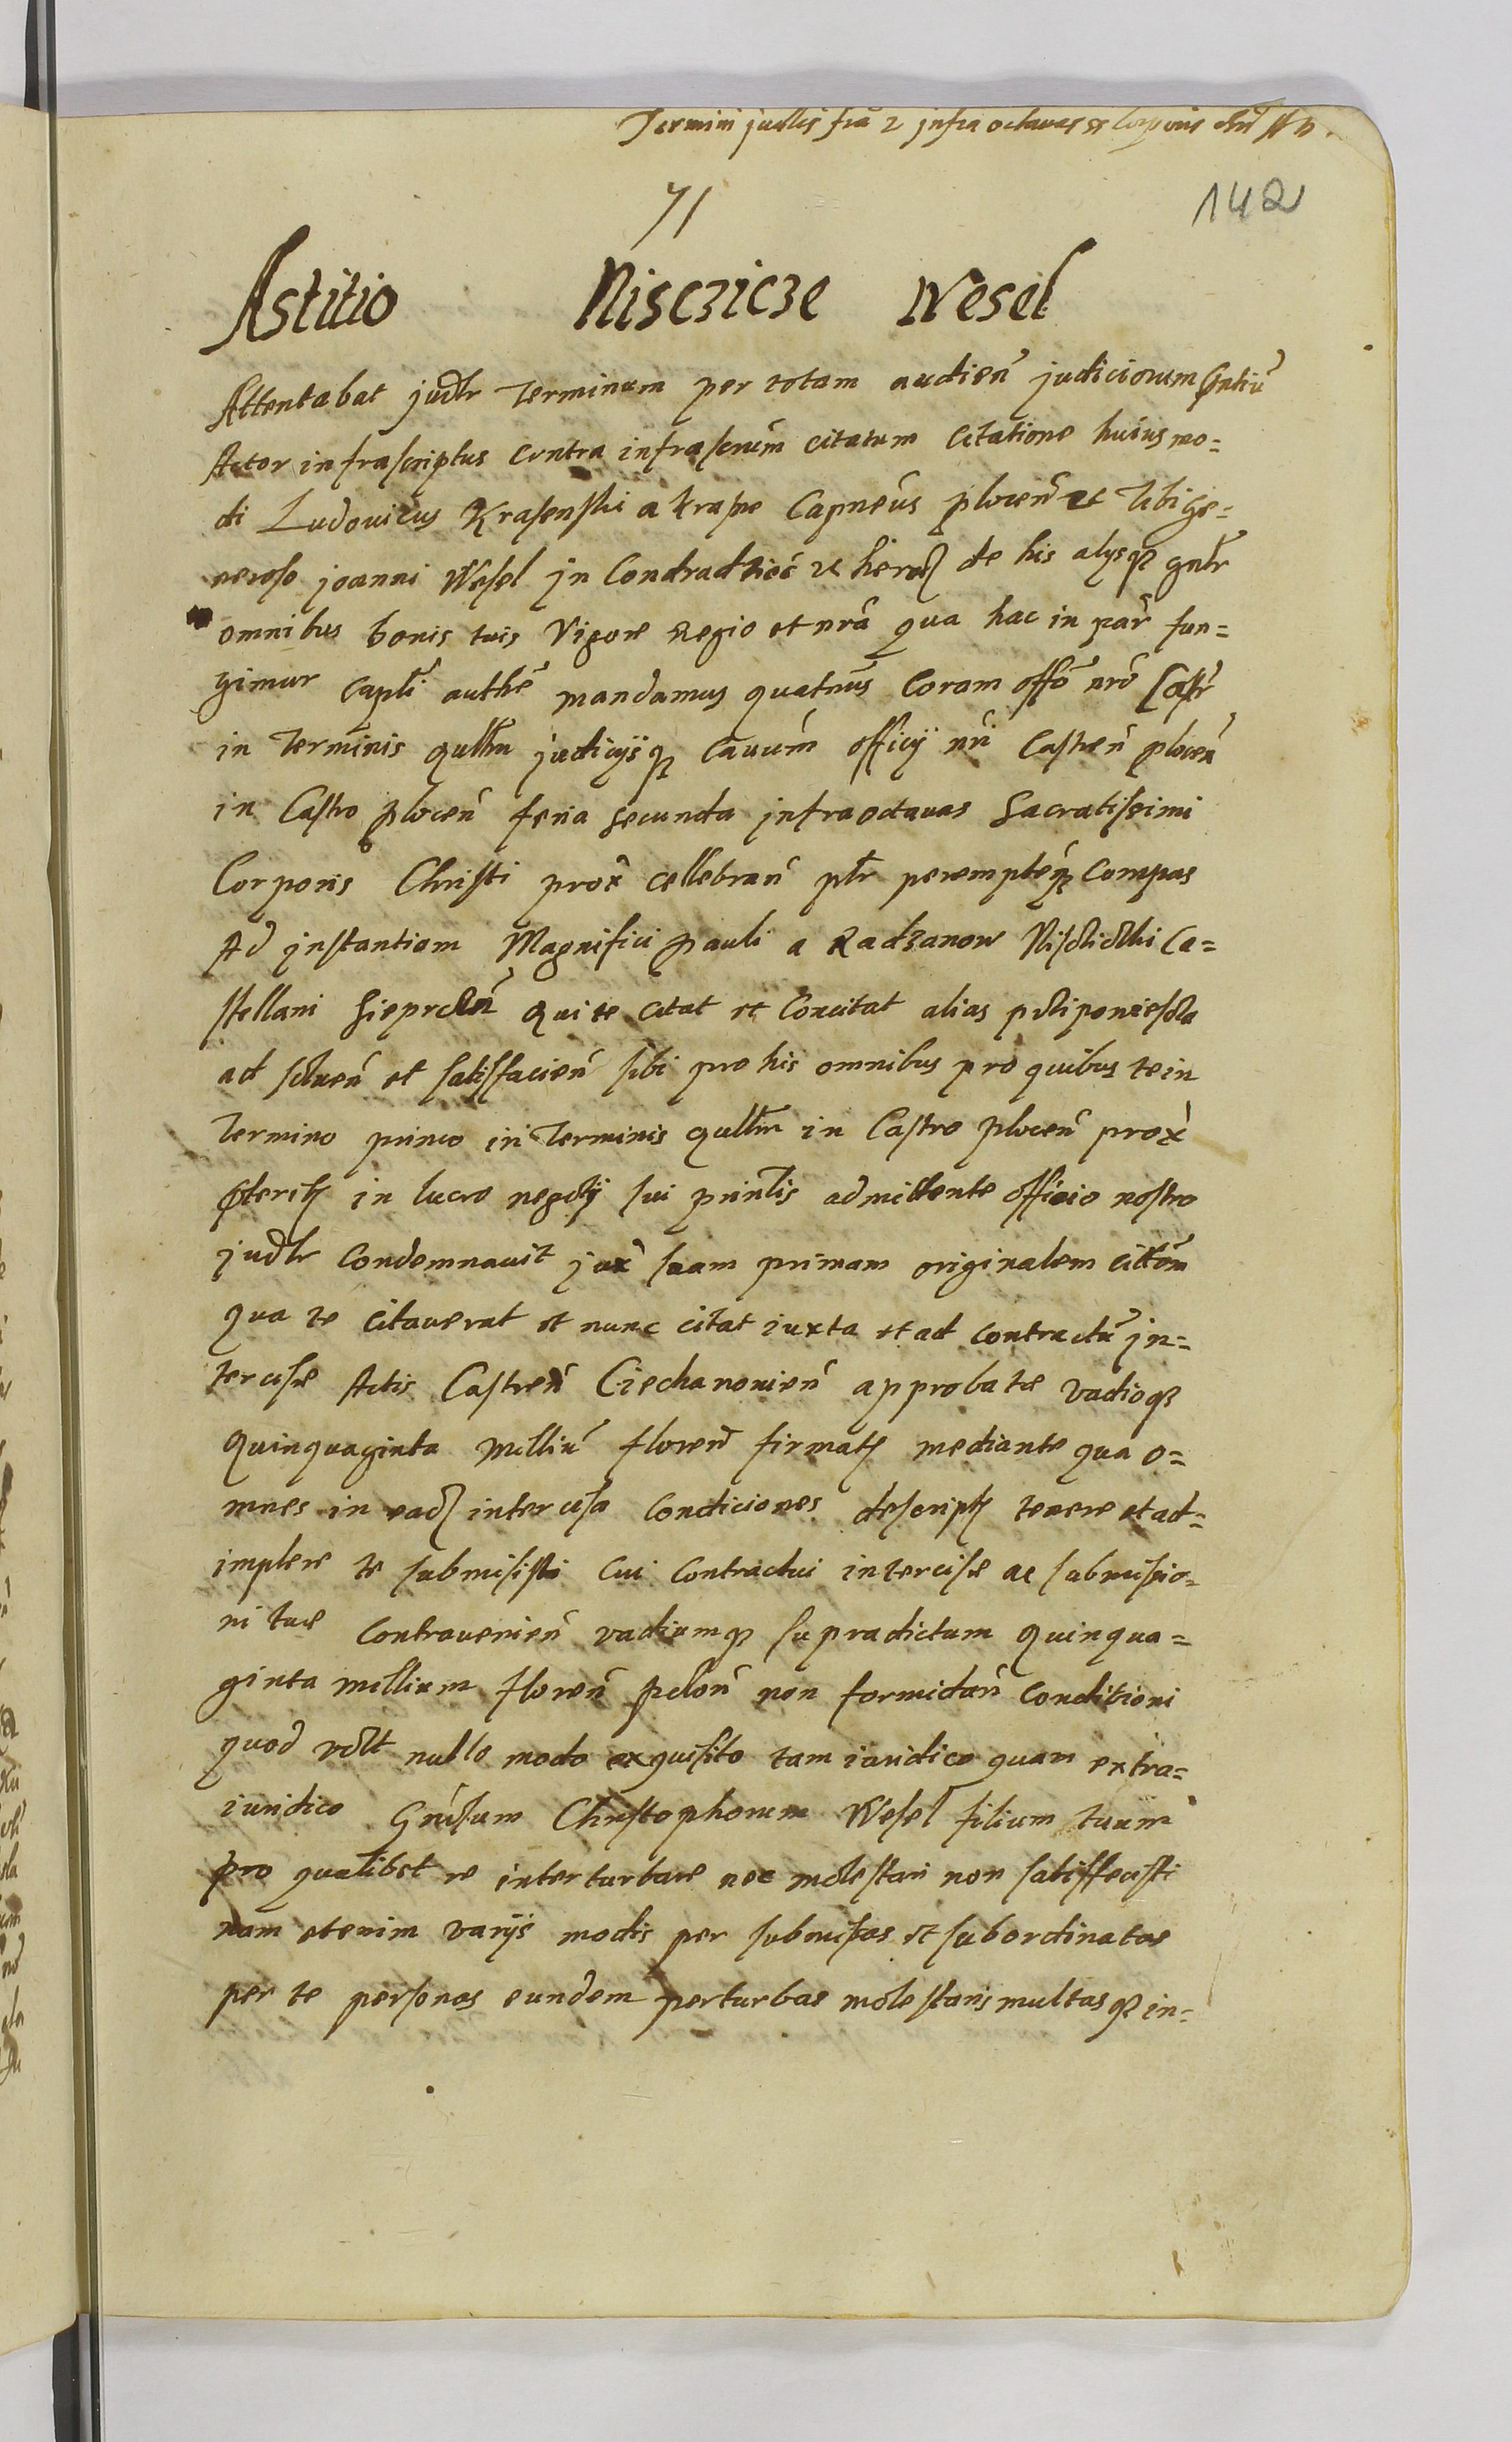 Termini judlis fria 2 infra octauas Corporis
71
142
Astitio Nisczicze Wesel
Attentabat judlr Terminum per totam audien judiciorum
Actor infrascriptus contra infrascrum citatum citatione huiusmo=
di Ludouicus Krasenski a Krasne Capneus plocen et Tibi ge=
neroso joanni Wesel in Condradziec et hered de his alysq gnlr
omnibus bonis tuis Vigore Regio et nra qua hac in par fun=
gimur capli authe mandamus quatnus Coram offo nro Castr
in Terminis qullm judicysq cauum officij nri Castren plocen
in Castro plocen feria secunda infra octauas Sacratissimi
Corporis Christi prox cellebran ptr perempteq compas
Ad instantiam Magnifici pauli a Radzanow Nisdicki Ca=
stellani Sieprcen Qui te citat et Concitat alias
ad soluen et satisfacien sibi pro his omnibus pro quibus te in
Termino primo in Terminis qullm in Castro plocen prox
pterit in lucro negotij sui prinlis admittente officio nostro
judlr Condemnauit jux suam primam originalem citom
qua te citauerat et nunc citat iuxta et ad contractu in=
tercise Actis Castren Ciechanouien approbatæ vadioq
Quinquaginta Milliu floren firmat mediante qua o=
mnes in ead intercisa Condiciones descript tenere et ad=
implere te submisisti Cui Contractui intercise ac submissio=
ni tuæ Contrauenien vadiumq supradictum Quinqua=
ginta millium floren polon non formidan Conditioni
quod vdlt nullo modo exquisito tam iuridico quam extra=
iuridico Gnosum Christophorum Wesel filium tuum
pro qualibet re interturbare nec molestari non satisfecisti
nam etenim varijs modis per submissas et subordinatas
per te personas eundem perturbas molestaris multasq in=